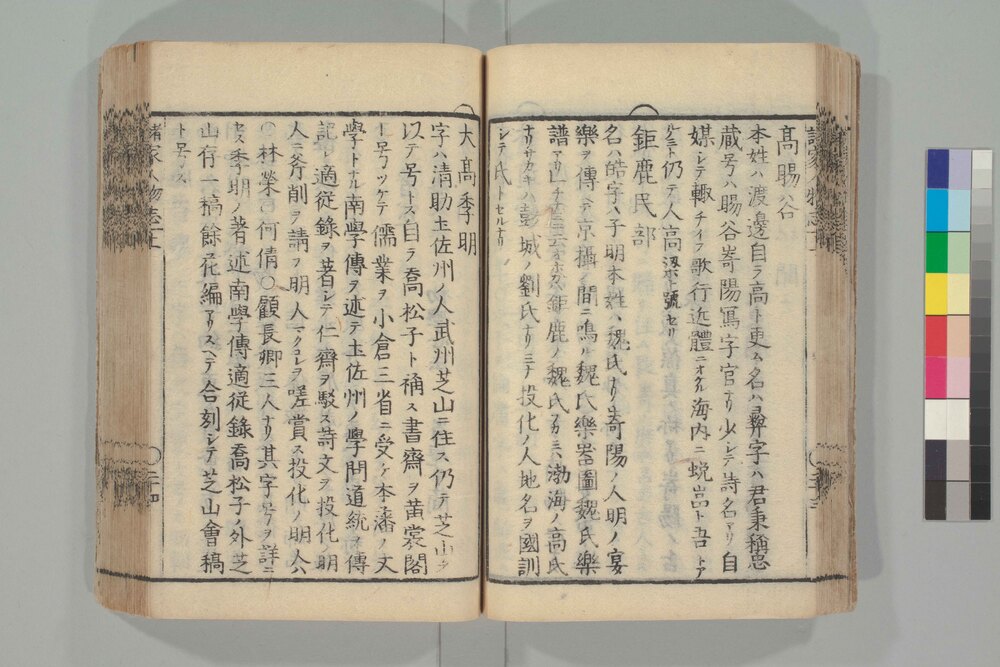 高暘谷
本姓ハ渡邊自ラ高ト更ム名ハ彛字ハ君秉稱忠
蔵号ハ暘谷嵜陽冩字官ナリ少シテ詩名アリ自
媒シテ輙チイフ歌行近體ニオク海内ニ蜕嵓ト吾トア
ルニト仍テ人高梁ト號セリ
鉅鹿民部
名ハ皓字ハ子明本姓ハ魏氏ナリ嵜陽ノ人明ノ宴
樂ヲ傳ヘテ京攝ノ間ニ鳴ル魏氏樂噐圖魏氏樂
譜アリ
鉅鹿ノ魏氏
渤海ノ高氏
彭城ノ劉氏ナリ三子投化ノ人地名ヲ國訓
シテ氏トセルナリ
大高季明
字ハ清助土佐州ノ人武州芝山ニ住ス仍テ芝山ヲ
以テ号トス自ラ喬松子ト稱ス書齋ヲ黄裳閣
ト号ツケテ儒業ヲ小倉三省ニ受ケ本藩ノ文
學トナル南學傳ヲ述テ土佐州ノ學問道統ヲ傳
記シ適從錄ヲ著シテ仁齋ヲ駁ス詩文ヲ投化明
人ニ斧削ヲ請フ明人マタコレヲ嗟賞ス投化ノ明人ハ
○林榮○何倩○顧長卿三人ナリ其字号ヲ詳ニ
セス季明ノ著述南學傳適從錄喬松子ノ外芝
山有一稿餘花編アリスヘテ合刻シテ芝山會稿
ト号ス
諸家人物志上